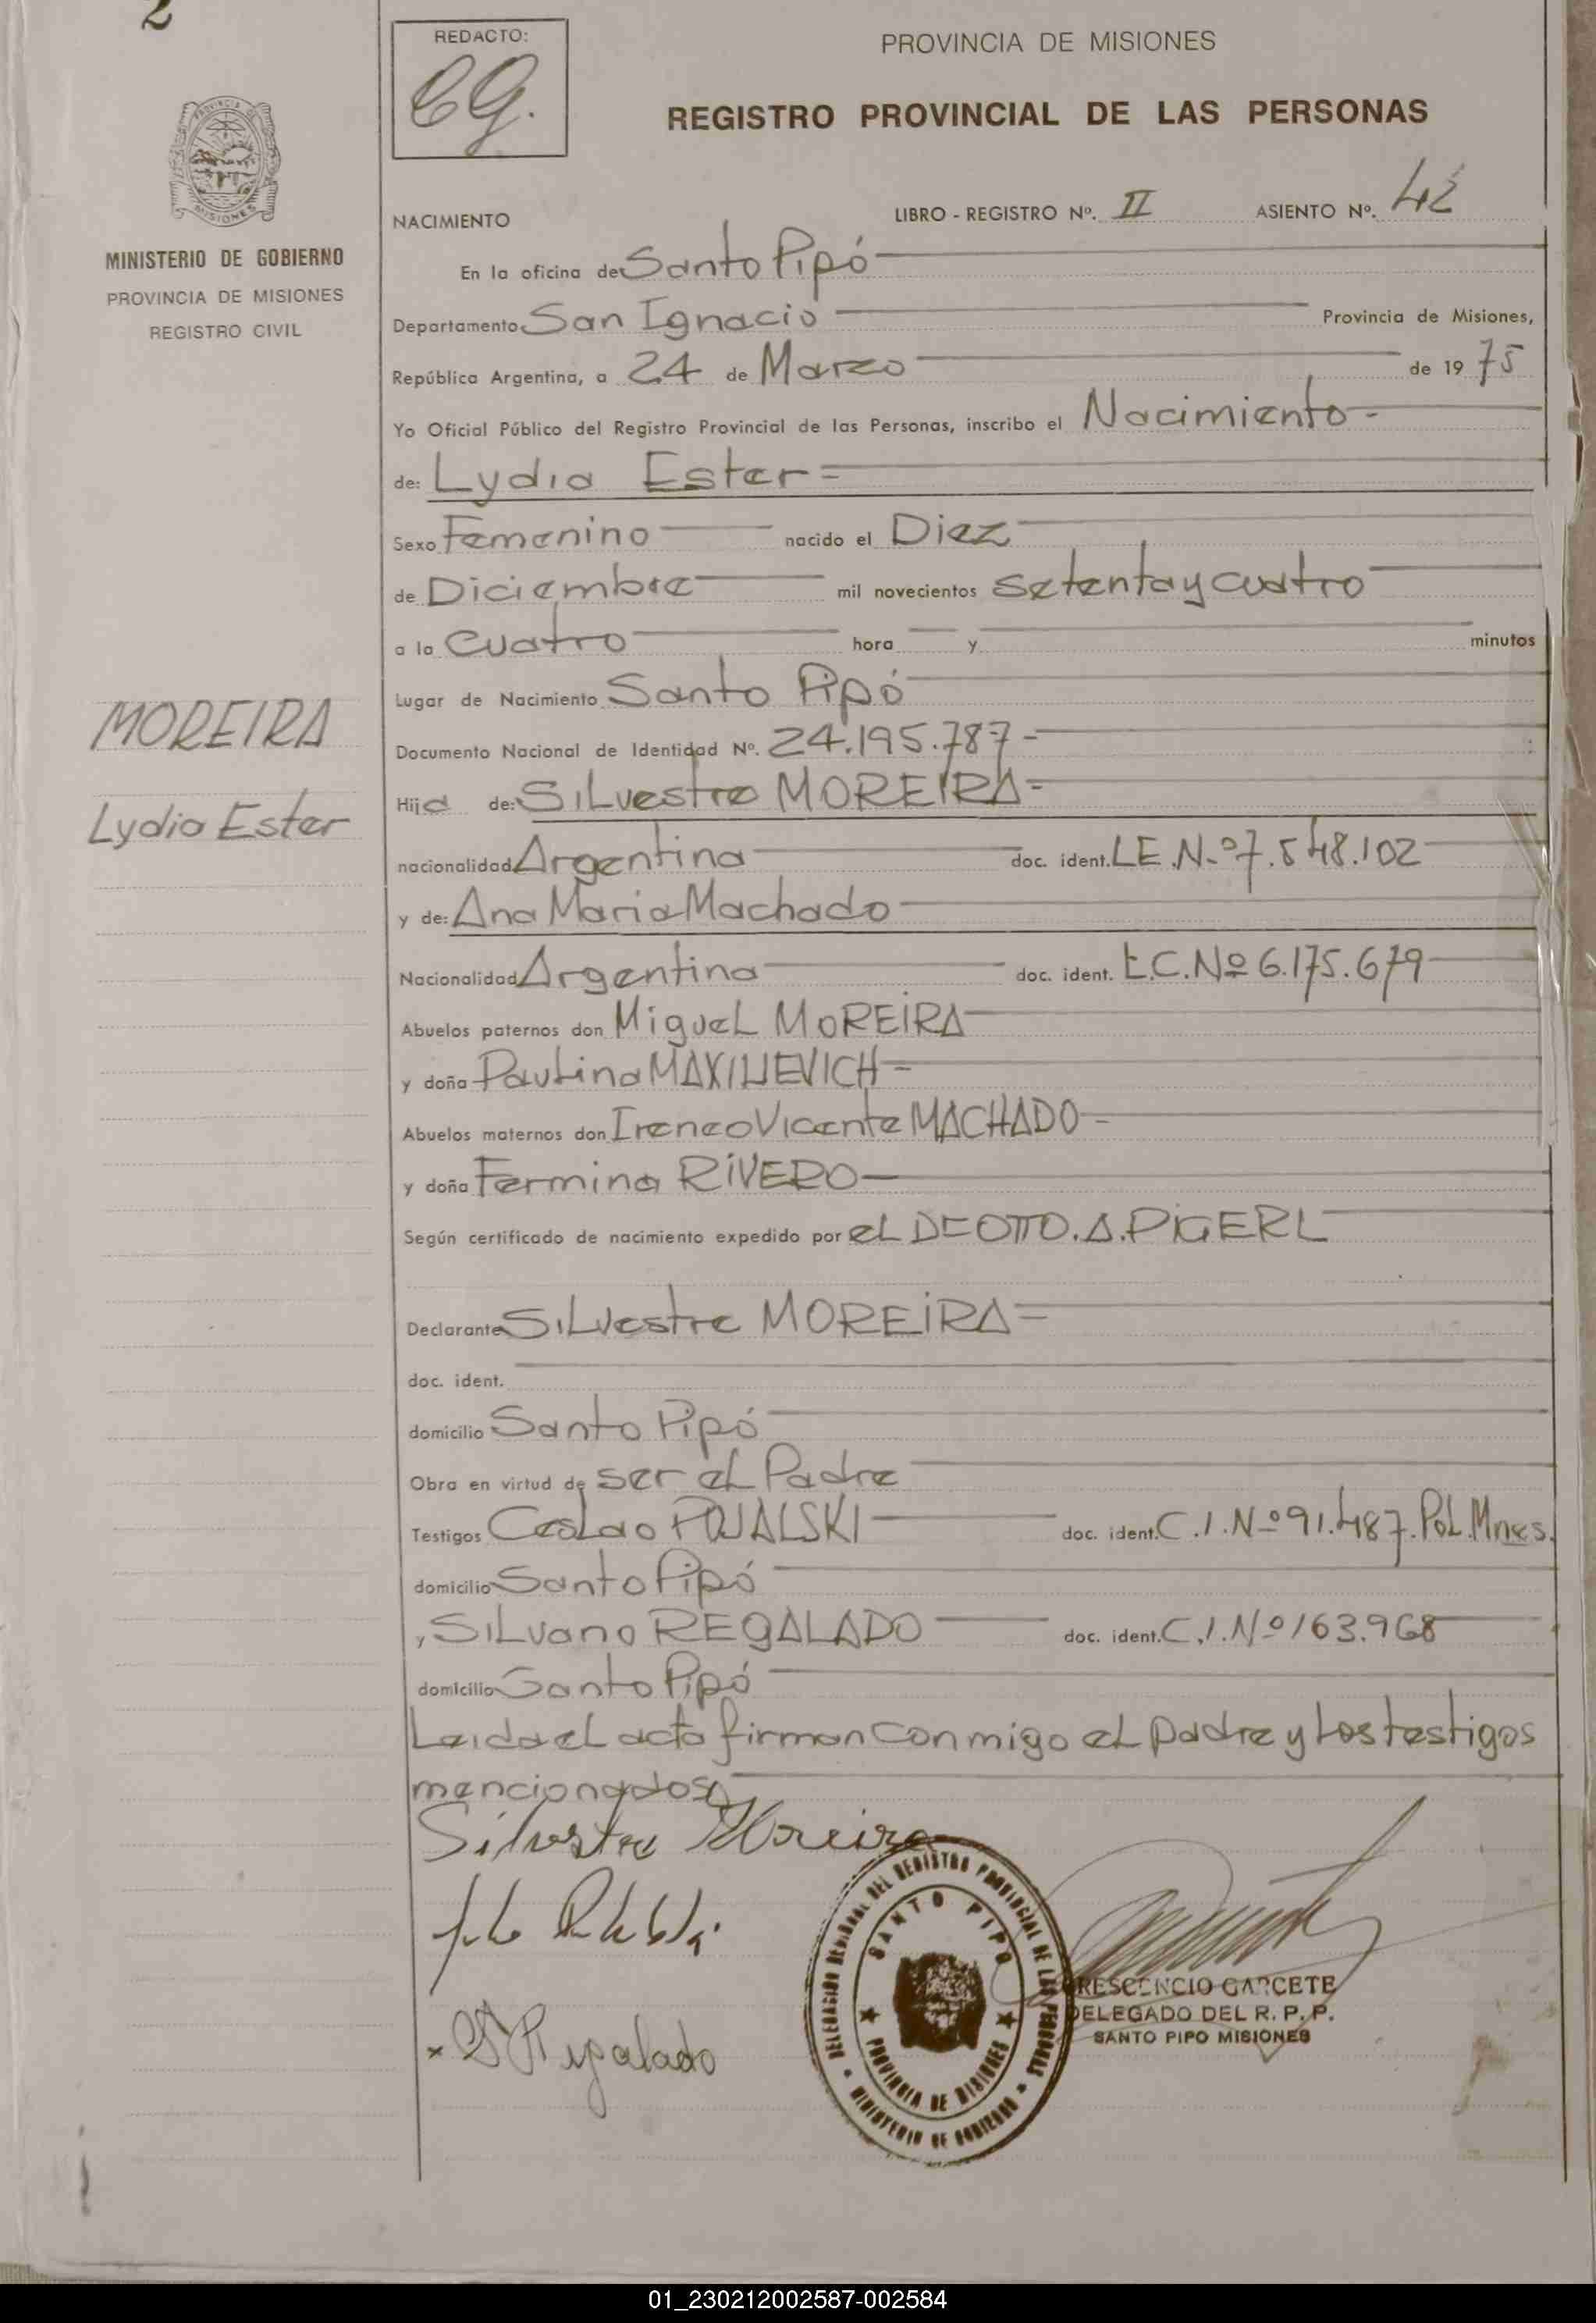 2
REDACTO:
CG.
PROVINCIA DE MISIONES
REGISTRO PROVINCIAL DE LAS PERSONAS
PROVINCIA
MISIONES
MINISTERIO DE GOBIERNO
PROVINCIA DE MISIONES
REGISTRO CIVIL
NACIMIENTO LIBRO - REGISTRO Nº. II ASIENTO Nº. 42
En la oficina de Santo Pipó
Departamento San Ignacio Provincia de Misiones,
República Argentina, a 24 de Marzo de 1975
Yo Oficial Público del Registro Provincial de las Personas, inscribo el Nacimiento-
de: Lydia Ester=
Sexo Femenino nacido el Diez
de Diciembre mil novecientos setenta y cuatro
a la cuatro hora y minutos
Lugar de Nacimiento Santo Pipó
MOREIRA
Lydia Ester
Documento Nacional de Identidad Nº. 24.195.787-
Hija de: Silvestre MOREIRA=
nacionalidad Argentina doc. ident. L.E.Nº 7.548.102
y de: Ana Maria Machado
Nacionalidad Argentina doc. ident. L.C.Nº 6.175.679
Abuelos paternos don Miguel MOREIRA
y doña Paulina MAXILIEVICH-
Abuelos maternos don Ireneo Vicente MACHADO-
y doña Fermina RIVERO
Según certificado de nacimiento expedido por el Dr OTTO.A.PIGERL
Declarante Silvestre MOREIRA=
doc. ident.
domicilio Santo Pipó
Obra en virtud de ser el Padre
Testigos Ceslao doc. ident. C.I.Nº 91.487.Pol.Mnes.
domicilio Santo Pipó
, Silvano REGALADO doc. ident. C.I.Nº 163.968
domicilio Santo Pipó
Leida el acta firman conmigo el padre y los testigos
mencionados
Silvestre Moreira
S Regalado
DELEGACION REGIONAL DEL REGISTRO PROVINCIAL DE LAS PERSONAS
SANTO PIPO
PROVINCIA DE MISIONES
MINISTERIO DE GOBIERNO
RESCENCIO GARCETE
DELEGADO DEL R. P. P.
SANTO PIPO MISIONES
01_230212002587-002584